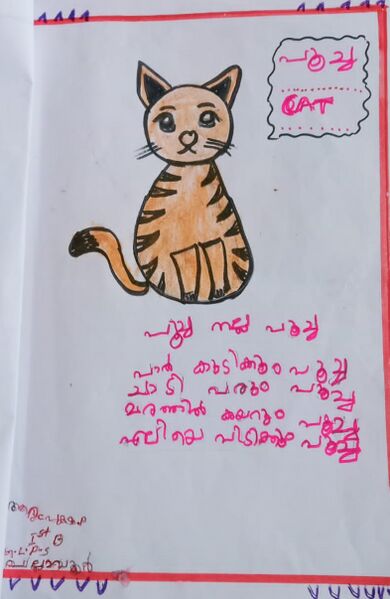 പൂച്ച
CAT
പൂച്ച നല്ല പൂച്ച
പാൽ കുടിക്കും പൂച്ച
ചാടി വരും പൂച്ച
മരത്തിൽ കയറും പൂച്ച
എലിയെ പിടിക്കും പൂച്ച
Ist B